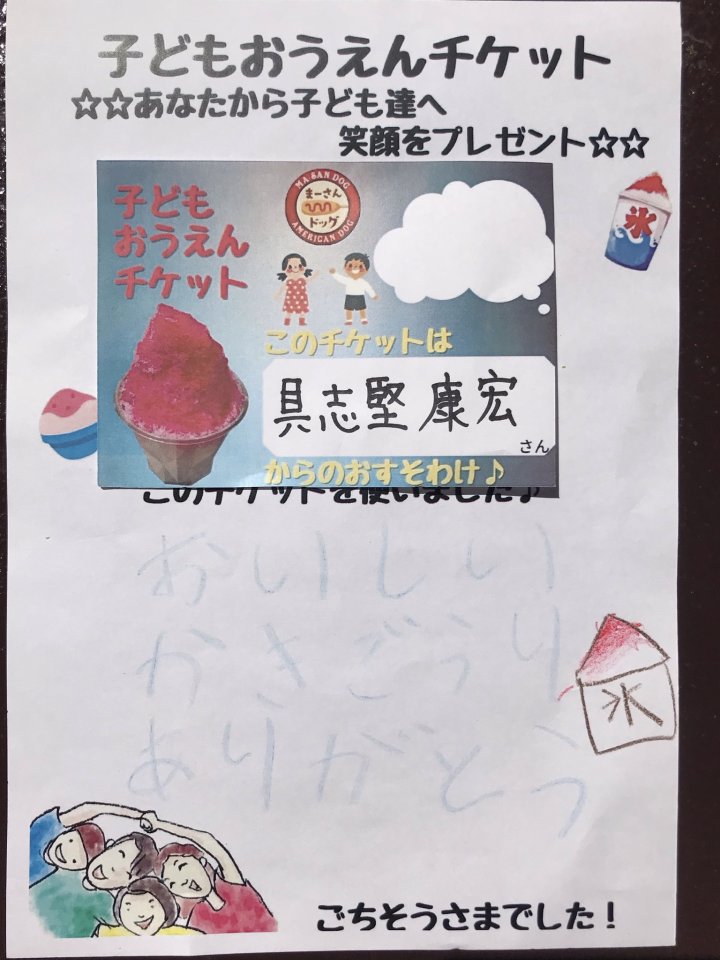 子どもおうえんチケット
☆☆あなたから子ども達へ
笑顔をプレゼント☆☆
氷
子ども
おうえん
チケット
MA SAN DOG
まーさん
ドッグ
AMERICAN DOG
このチケットは
具志堅康宏
さん
からのおすそわけ♪
このチケットを使いました♪
おいしい
かきごうり
ありがとう
氷
ごちそうさまでした！